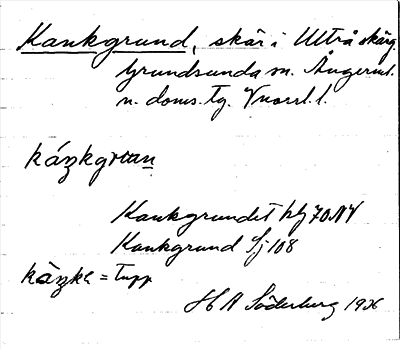 Kankgrund, skär i Ultrå skärg.
Grundsunda sn. Ångerml.
n. doms. tg. Vnorrl. l.
káŋkgrɯn
Kankgrundet hbl 70 NV
Kankgrund Sj 108
kàŋkɐ = tupp
H A Söderberg 1936